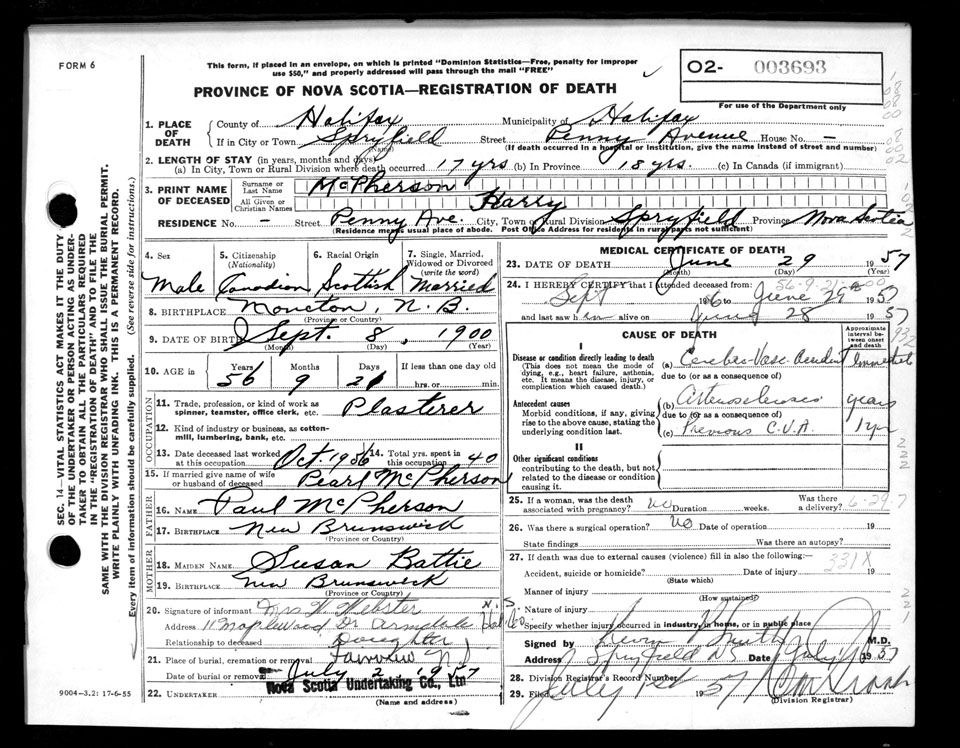 FORM 6
This form, if placed in an envelope, on which is printed "Dominion Statistics—Free, penalty for improper
use $50," and properly addressed will pass through the mail "FREE"
O2- 003693
For use of the Department only
PROVINCE OF NOVA SCOTIA—REGISTRATION OF DEATH
1. PLACE OF DEATH
County of Halifax Municipality of Halifax
If in City or Town Spryfield Street Penny Avenue House No. –
(Name) (If death occurred in a hospital or institution, give the name instead of street and number)
2. LENGTH OF STAY (in years, months and days)
(a) In City, Town or Rural Division where death occurred 17 yrs (b) In Province 18 yrs. (c) In Canada (if immigrant)
3. PRINT NAME OF DECEASED
Surname or Last Name McPherson
All Given or Christian Names Harry
RESIDENCE No. – Street Penny Ave. City, Town or Rural Division Spryfield Province Nova Scotia
(Residence means usual place of abode. Post Office Address for residents in rural parts not sufficient)
4. Sex
Male
5. Citizenship
(Nationality)
Canadian
6. Racial Origin
Scottish
7. Single, Married,
Widowed or Divorced
(write the word)
Married
8. BIRTHPLACE Moncton N.B.
(Province or Country)
9. DATE OF BIRTH Sept. 8, 1900
(Month) (Day) (Year)
10. AGE in Years Months Days If less than one day old
56 9 21 hrs. or min.
OCCUPATION
11. Trade, profession, or kind of work as
spinner, teamster, office clerk, etc. Plasterer
12. Kind of industry or business, as cotton-
mill, lumbering, bank, etc.
13. Date deceased last worked
at this occupation Oct. 1956
14. Total yrs. spent in
this occupation 40
15. If married give name of wife
or husband of deceased Pearl McPherson
FATHER
16. NAME Paul McPherson
17. BIRTHPLACE New Brunswick
(Province or Country)
MOTHER
18. MAIDEN NAME Susan Battie
19. BIRTHPLACE New Brunswick
(Province or Country)
20. Signature of informant Mrs W. Webster N.S.
Address 11 Maplewood Dr Armdale
Relationship to deceased Daughter
21. Place of burial, cremation or removal Fairview N.S.
Date of burial or removal July 2 1957
22. UNDERTAKER Nova Scotia Undertaking Co., Ltd
(Name and address)
MEDICAL CERTIFICATE OF DEATH
23. DATE OF DEATH June 29 1957
(Month) (Day) (Year)
24. I HEREBY CERTIFY that I attended deceased from:
Sept 1956 to June 29 1957
and last saw him alive on June 28 1957
CAUSE OF DEATH
Approximate
interval be-
tween onset
and death
I
Disease or condition directly leading to death
(This does not mean the mode of
dying, e.g., heart failure, asthenia,
etc. It means the disease, injury, or
complication which caused death.)
(a) Cerebro-Vasc. Accident Immediate
due to (or as a consequence of)
Antecedent causes
Morbid conditions, if any, giving
rise to the above cause, stating the
underlying condition last.
(b) Arteriosclerosis years
due to (or as a consequence of)
(c) Previous C.V.A. 1 yr
II
Other significant conditions
contributing to the death, but not
related to the disease or condition
causing it.
25. If a woman, was the death
associated with pregnancy? no Duration weeks. Was there
a delivery? 6-29-7
26. Was there a surgical operation? No Date of operation 19
State findings Was there an autopsy?
27. If death was due to external causes (violence) fill in also the following:—
331X
Accident, suicide or homicide? Date of injury 19
(State which)
Manner of injury
(How sustained)
Nature of injury
Specify whether injury occurred in industry, in home, or in public place
Signed by Smith M.D.
Address Spryfield NS Date July 1957
28. Division Registrar's Record Number
29. Filed July 1957
(Division Registrar)
9004-3.2: 17-6-55
SEC. 14—VITAL STATISTICS ACT MAKES IT THE DUTY
OF THE UNDERTAKER OR PERSON ACTING AS UNDER-
TAKER TO OBTAIN ALL THE PARTICULARS REQUIRED
IN THE "REGISTRATION OF DEATH" AND TO FILE THE
SAME WITH THE DIVISION REGISTRAR WHO SHALL ISSUE THE BURIAL PERMIT.
WRITE PLAINLY WITH UNFADING INK. THIS IS A PERMANENT RECORD.
Every item of information should be carefully supplied. (See reverse side for instructions.)